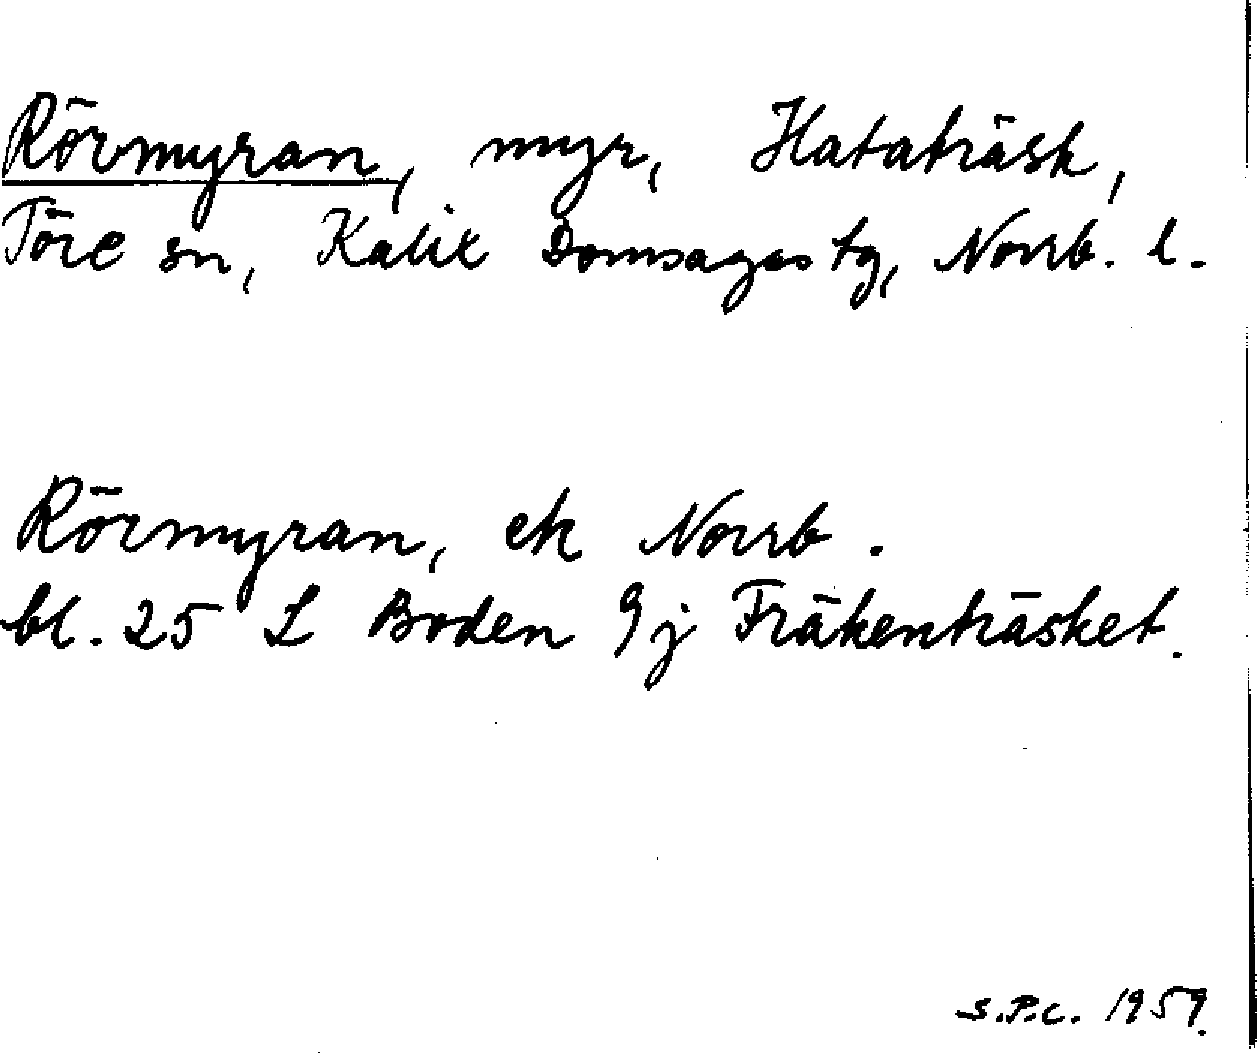 Rörmyran, myr, Hataträsk,
Töre sn, Kalix Domsagas tg, Norrb. l.
Rörmyran, ek Norrb.
bl. 25 L Boden 9 j Fräkenträsket.
S.P.C. 1959.